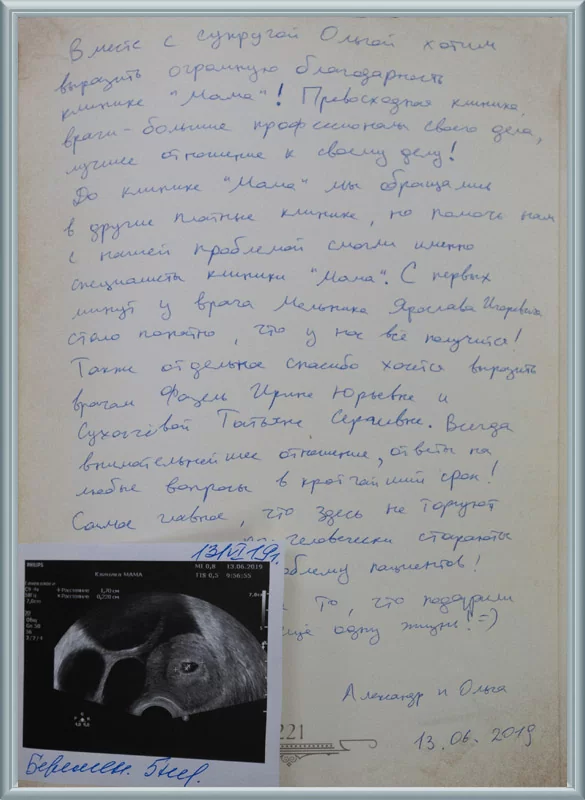 Вместе с супругой Ольгой хотим
выразить огромную благодарность
клинике "Мама"! Превосходная клиника,
врачи - большие профессионалы своего дела,
лучшее отношение к своему делу!
До клинике "Мама" мы обращались
в другие платные клинике, но помочь нам
с нашей проблемой смогли именно
специалисты клиники "Мама". С первых
минут у врача Мельника Ярослава Игоревича
стало понятно, что у нас всё получится!
Также отдельное спасибо хочется выразить
врачам Фазель Ирине Юрьевне и
Сухачёвой Татьяне Сергеевне. Всегда
внимательнейшее отношение, ответы на
любые вопросы в кротчайший срок!
Самое главное, что здесь не торгуют
человечески стараются
облему пациентов!
то, что подарили
ещё одну жизнь! =)
Александр и Ольга
13.06.2019
221
13/VI 19г.
PHILIPS
Клиника МАМА
MI 0,8 13.06.2019
TIS 0,3 9:56:55
+ Расстояние 1,70 см
× Расстояние 0,220 см
7,0см
Беремен. 5 нед.